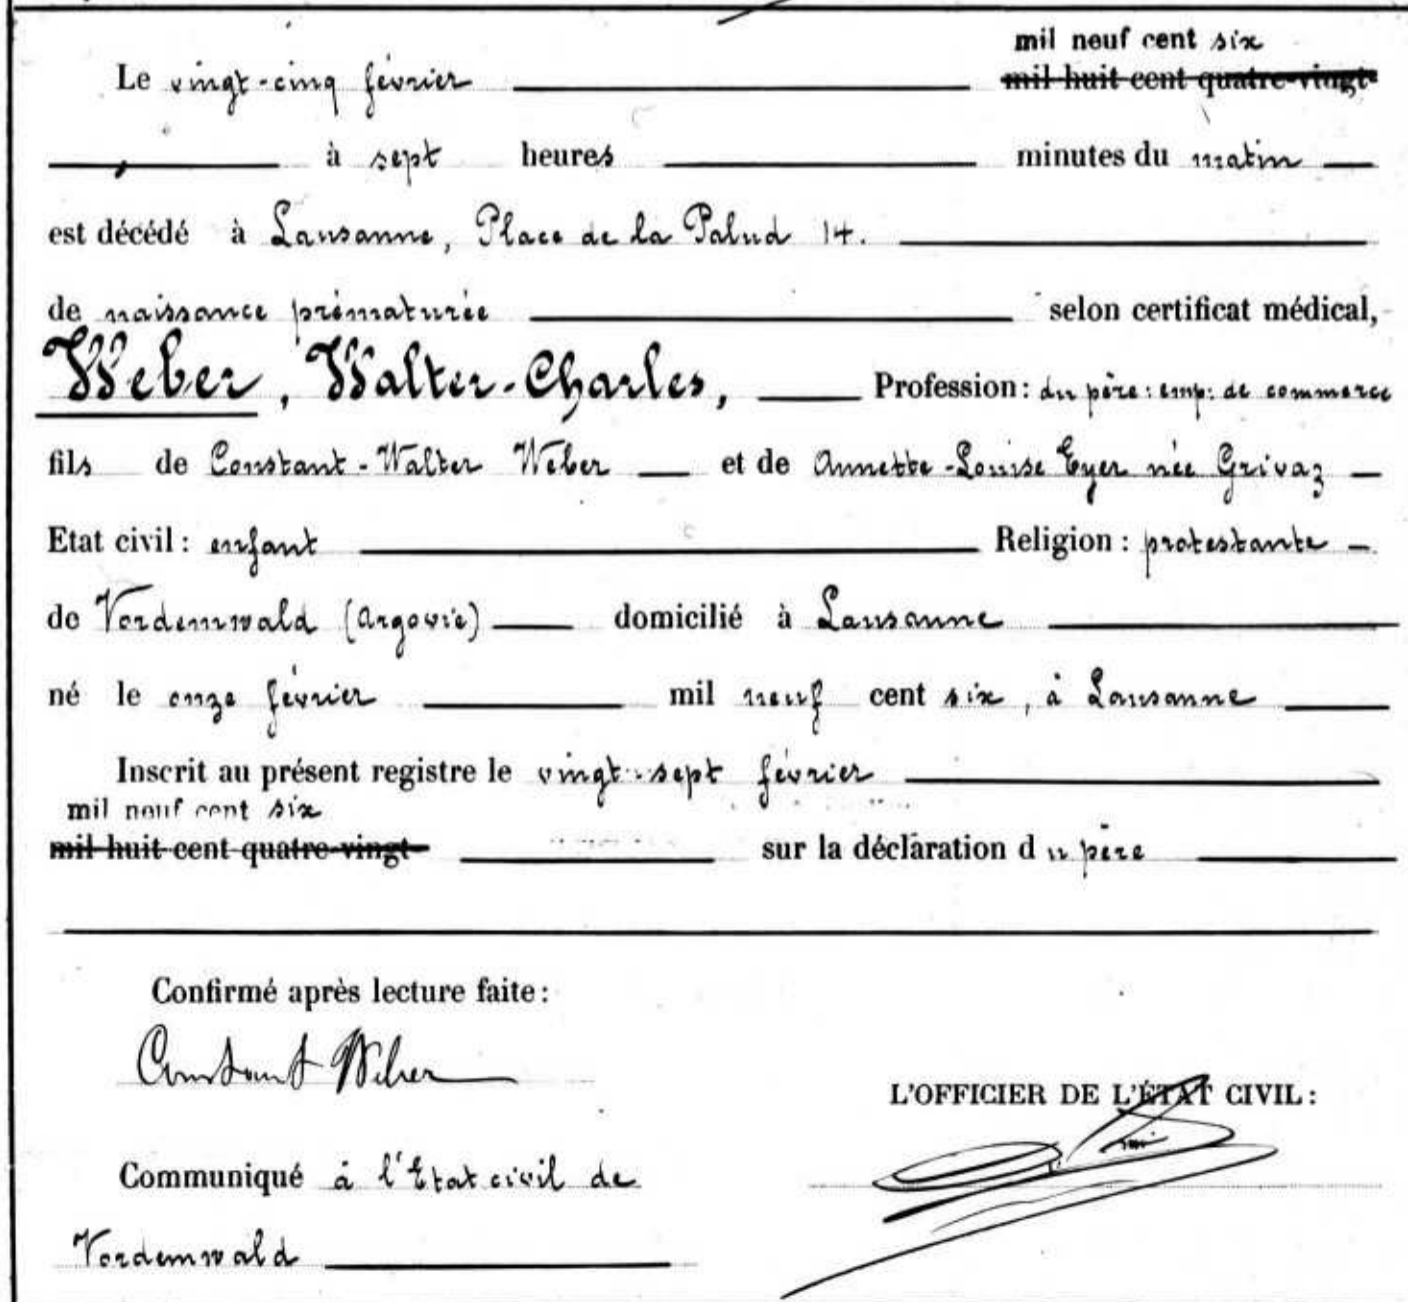 mil neuf cent six
Le vingt-cinq février mil huit cent quatre-vingt-
à sept heures minutes du matin
est décédé à Lausanne, Place de la Palud 14.
de naissance prématurée selon certificat médical,
Weber, Walter-Charles, Profession : du père : emp: de commerce
fils de Constant-Walter Weber et de Annette-Louise Eyer née Grivaz
Etat civil : enfant Religion : protestante
de Vordemwald (Argovie) domicilié à Lausanne
né le onze février mil neuf cent six, à Lausanne
Inscrit au présent registre le vingt-sept février
mil neuf cent six
mil huit cent quatre-vingt- sur la déclaration du père
Confirmé après lecture faite :
Constant Weber
L'OFFICIER DE L'ÉTAT CIVIL :
Communiqué à l'Etat civil de
Vordemwald